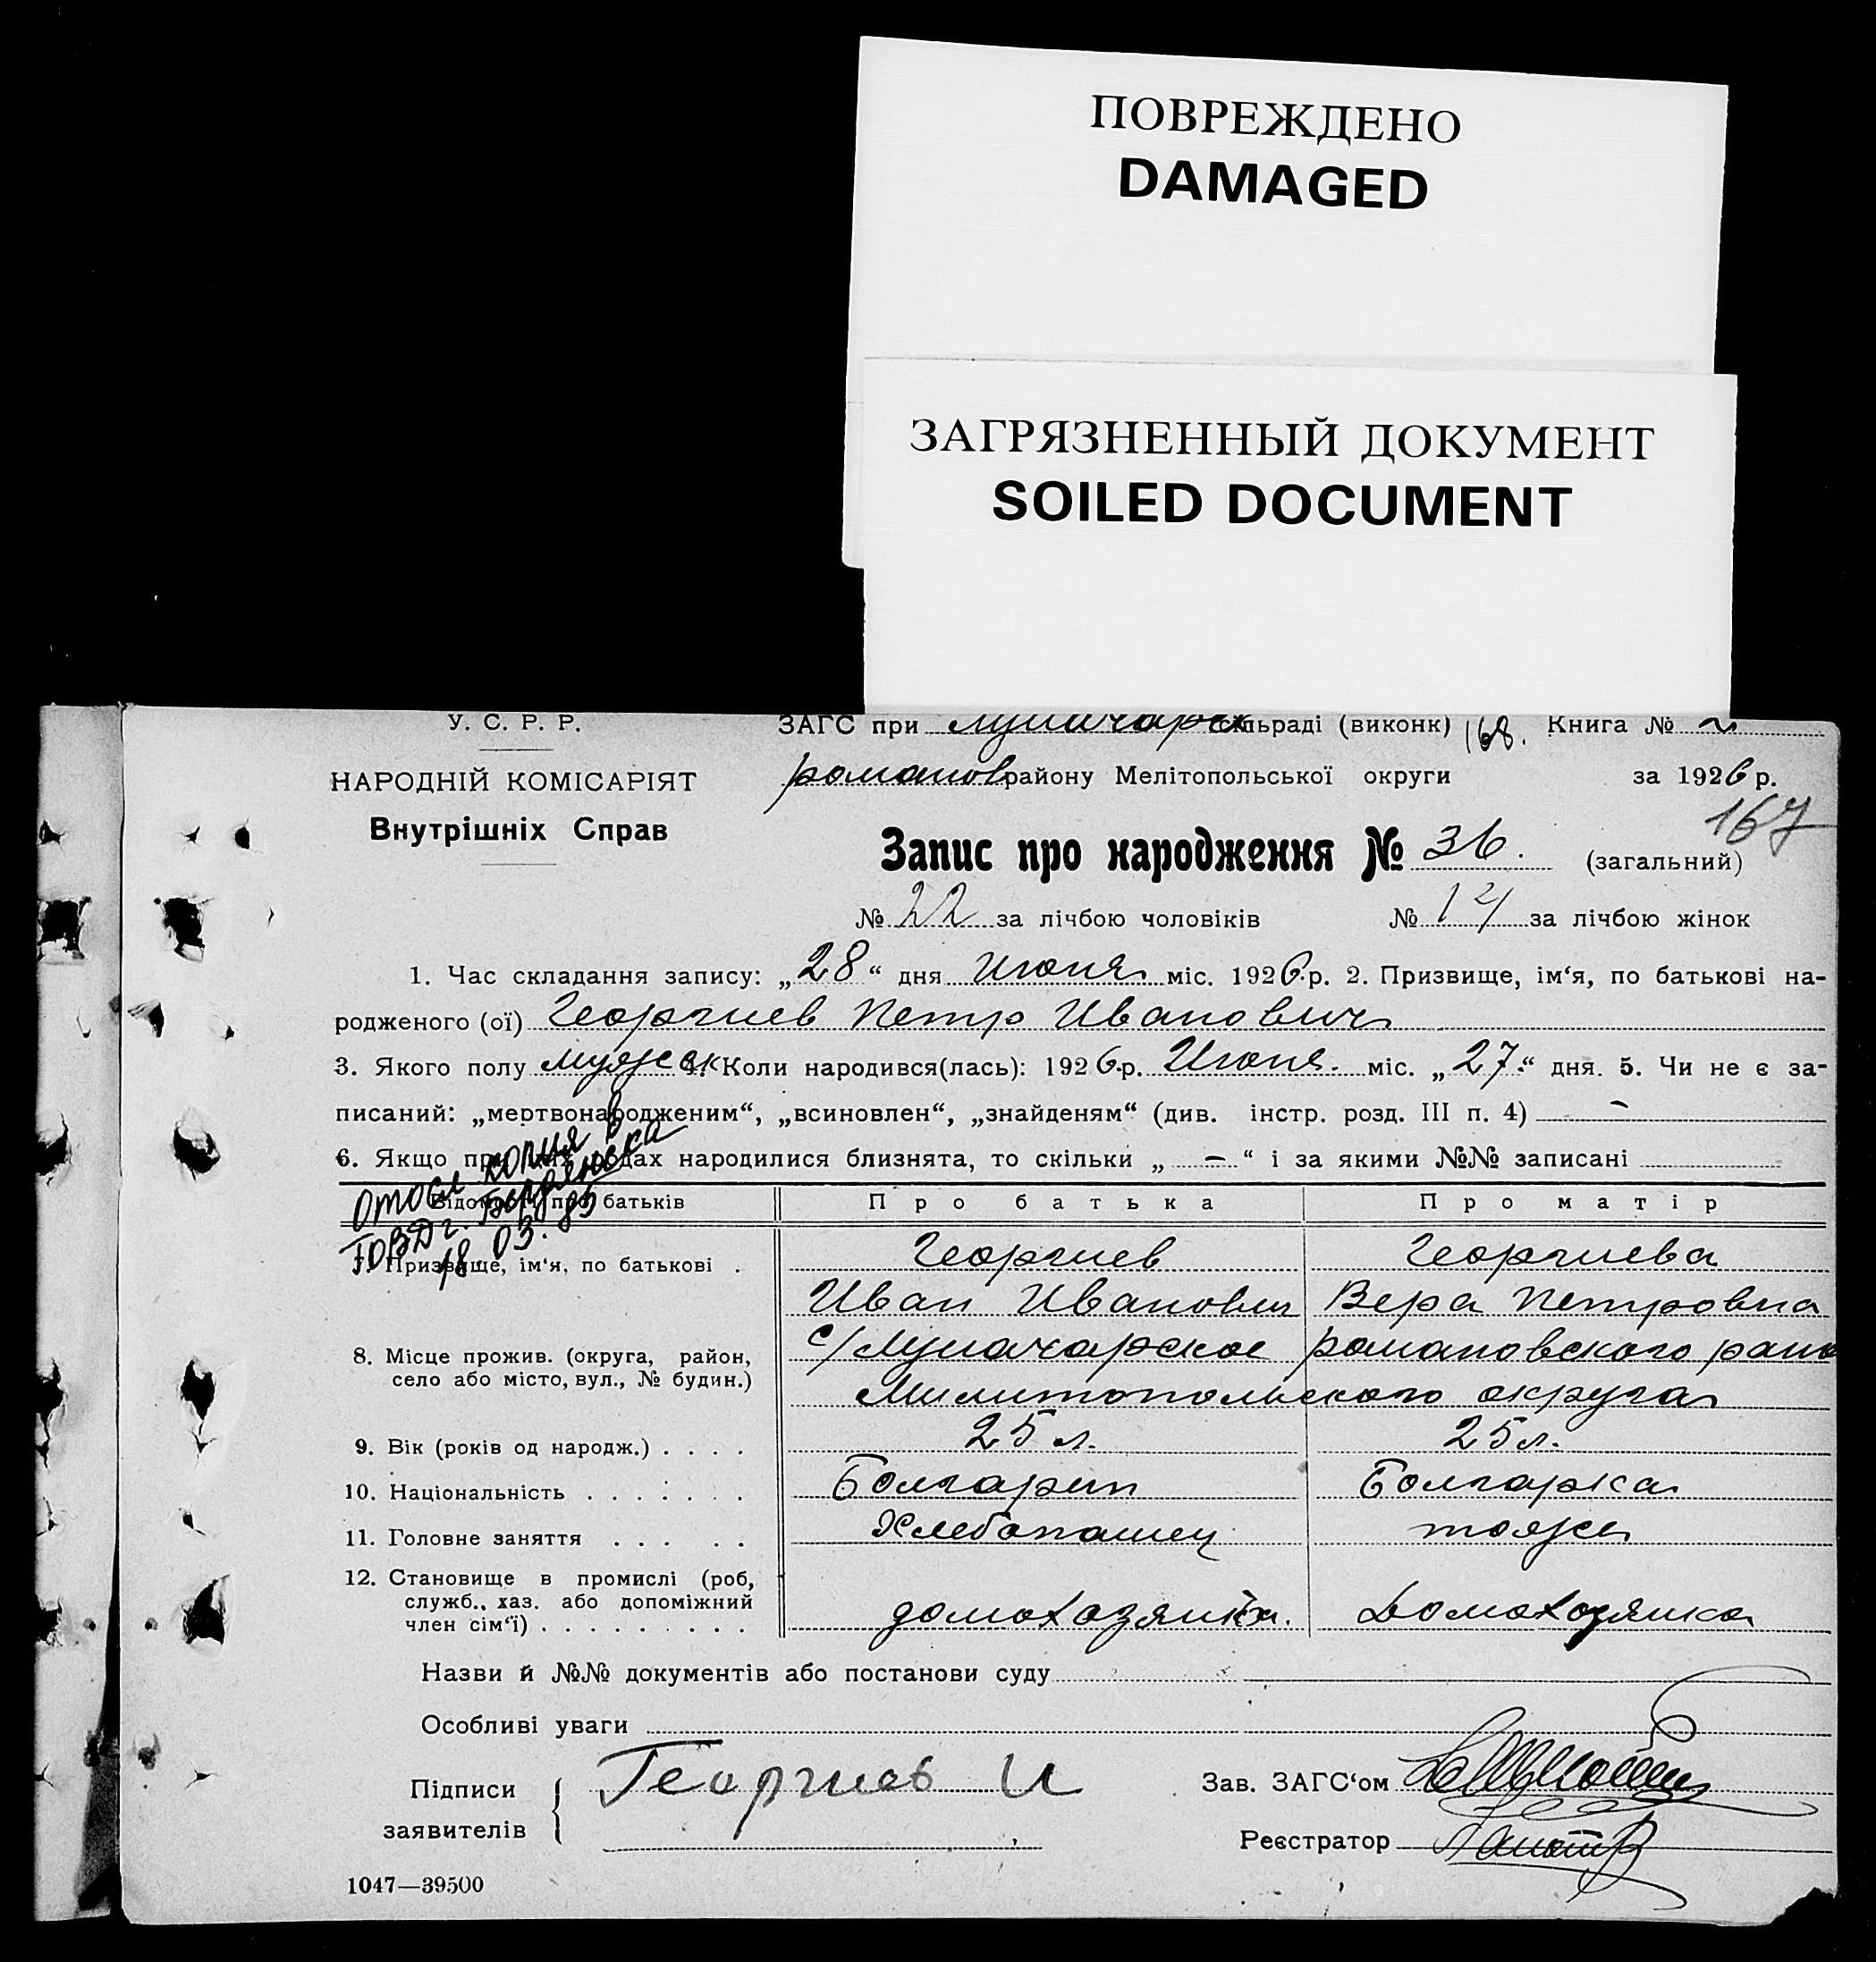 ПОВРЕЖДЕНО
DAMAGED
ЗАГРЯЗНЕННЫЙ ДОКУМЕНТ
SOILED DOCUMENT
У. С. Р. Р.
НАРОДНІЙ КОМІСАРІЯТ
Внутрішніх Справ
ЗАГС при Луначарск сільраді (виконк) 168. Книга № 2
романов району Мелітопольської округи за 1926 р.
167
Запис про народження № 36. (загальний)
№ 22 за лічбою чоловіків № 14 за лічбою жінок
1. Час складання запису: „28“ дня Июня міс. 1926 р. 2. Призвище, ім‘я, по батькові на-
родженого (ої) Георгиев Петр Иванович
3. Якого полу мужск 4. Коли народився(лась): 1926 р. Июня міс. „27“ дня. 5. Чи не є за-
писаний: „мертвонародженим“, „всиновлен“, „знайденям“ (див. інстр. розд. III п. 4) –
6. Якщо при цих родах народилися близнята, то скільки „ – “ і за якими №№ записані
Отосл копия в
ГОВД г. Бердянска
18 03. 85
Відомості про батьків Про батька Про матір
7. Призвище, ім‘я, по батькові . Георгиев Георгиева
Иван Иванович Вера Петровна
8. Місце прожив. (округа, район, село або місто, вул., № будин.) с/Луначарское романовского раио
Милитопольского округа
9. Вік (років од народж.) . . . . 25 л. 25 л.
10. Національність . . . . . . . Болгарин Болгарка
11. Головне заняття . . . . . Хлебопашец тоже
12. Становище в промислі (роб,
служб., хаз. або допоміжний
член сім‘ї) . . . . . . . . . домохозяин. Домохозяика
Назви й №№ документів або постанови суду
Особливі уваги
Підписи заявителів Георгиев И
Зав. ЗАГС‘ом
Реєстратор
1047—39500